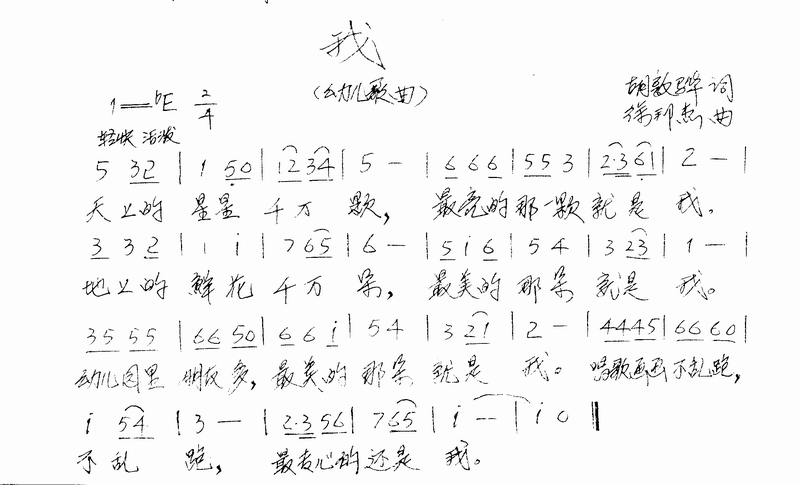 我
(幼儿歌曲)
1=♭E 2/4 胡敦骅 词
轻快 活泼 徐邦杰 曲
5 32 | 1 50 | 12 34 | 5 - | 6 6 6 | 55 3 | 2·3 61 | 2 - |
天上的 星星 千万 颗， 最亮的那一颗就是 我。
3 3 2 | 1 i | 7 65 | 6 - | 5 i 6 | 5 4 | 3 23 | 1 - |
地上的 鲜花 千万 朵， 最美的 那朵 就是 我。
35 55 | 66 50 | 6 6 i | 5 4 | 3 21 | 2 - | 4445 | 66 60 |
幼儿园里 朋友多，最美的 那朵 就是 我。唱歌画画不乱跑，
i 54 | 3 - | 2·3 56 | 7 65 | i - - | i 0 ‖
不乱 跑， 最友心的还是 我。